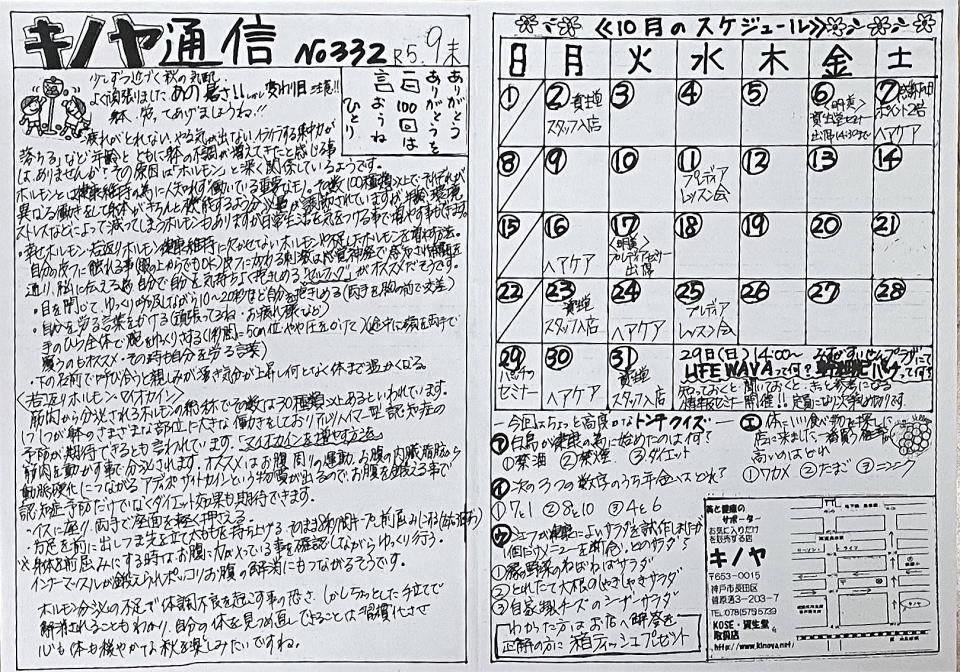 キノヤ通信 No332 R5. 9末
ありがとう
ありがとうを
一日100回は
言おうね
ひとり
少しずつ近づく秋の気配。
よく頑張りました あの暑さ!!
疲れがとれない、やる気が出ない、イライラする、集中力が
落ちる」など年齢とともに体の不調が増えてきたと感じる事
は、ありませんか?その原因は「ホルモン」と深く関係しているようです。
ホルモンとは健康維持の為に人知れず働いている重要なモノ。その数100種類以上で、それぞれが
異なる働きをして身体がきちんと機能するよう分泌量が調節されていますが年齢、環境
ストレスなどによって減ってしまうホルモンもありますが日常生活を気をつける事で増やす事ができます。
・幸せホルモン・若返りホルモン 健康維持に欠かせないホルモンや不足したホルモンを増やす方法。
自分の皮フに触れる事(服の上からでもOK)皮フにかかる刺激は感覚神経で感知され脊髄を
通り、脳に伝える為自分で自分を気持ちよく抱きしめるセルフハグがオススメだそうです。
・目を閉じて、ゆっくり呼吸しながら10〜20秒ほど自分を抱きしめる(両手を胸の前で交差)
・自分を労る言葉をかける(頑張ってるね・お疲れ様など)
・手のひら全体で腕をゆっくりさする(1秒間に5cm位やや圧をかけて)(途中に頬を両手で
覆うのもオススメ・その時も自分を労る言葉)
・下の名前で呼び合うと親しみが湧き気分が上昇し何となく休まで温かくなる。
〈若返りホルモン・マイオカイン〉
筋肉から分泌されるホルモンの総称でその数は30種類以上あるといわれています。
1つ1つが体のさまざまな部位に大きな働きをしておりアルツハイマー型認知症の
予防が期待できるとも言われています。「マイオカインを増やす方法」
筋肉を動かす事で分泌されます。オススメはお腹周りの運動。お腹の内臓脂肪から
動脈硬化につながるアディポサイトカインという物質が出るので、お腹を鍛える事で
認知症予防だけでなくダイエット効果も期待できます。
・イスに座り両手で座面を軽く押さえる。
・両足を前に出しつま先を立て太ももを持ち上げる そのまま8秒間キープし前屈みになる
※身体を前屈みにする時はお腹に力が入っている事を確認しながらゆっくり行う。
インナーマッスルが鍛えられポッコリお腹の解消にもつながるそうです。
ホルモン分泌の不足で体調不良を起こす事の恐さ、しかしちょっとした手立てで
解消されることもわかり、自分の体を見つめ直しできることは習慣化させ
心も体も穏やかな秋を楽しみたいですね。
《10月のスケジュール》
日 月 火 水 木 金 土
① ② 資生堂 スタッフ入店 ③ ④ ⑤ ⑥ 〈明美〉 資生堂セミナー 出席 14:30まで ⑦ ポイント2倍 ヘアケア
⑧ ⑨ ⑩ ⑪ プレディア レッスン会 ⑫ ⑬ ⑭
⑮ ⑯ ヘアケア ⑰ 〈明美〉 プレディアセミナー 出席 ⑱ ⑲ ⑳ ㉑
㉒ ㉓ 資生堂 スタッフ入店 ㉔ ヘアケア ㉕ プレディア レッスン会 ㉖ ㉗ ㉘
㉙ パッチの セミナー ㉚ ヘアケア ㉛ 資生堂 スタッフ入店
29日(日) 14:00〜 みずがすいせんプラザにて
LIFE WAVEって何? パッチって何?
知っておくと・聞いておくと・きっと参考になる
情報セミナー開催!! 定員になり次第〆切りです。
—今回はちょっと高度なトンチクイズ—
㋐ 白鳥が健康の為に始めたのは何?
①禁油 ②禁煙 ③ダイエット
㋑ 次の3つの数字のうち年金はどれ?
①7と1 ②8と10 ③4と6
㋒ シェフが健康によいサラダを試作しましたが
1個だけメニューを却下、どのサラダ?
①緑野菜のねばねばサラダ
②とれたて大根のしゃきしゃきサラダ
③自家製チーズのシーザーサラダ
㋓ 体にいい食べ物を探しに
店に来ました 一番質の
高いのはどれ
①ワカメ ②たまご ③ニンニク
わかった方はお店へ解答を
正解の方に 箱ティッシュプレゼント
美と健康の
サポーター
お気に入りだけ
を販売する店
キノヤ
〒653-0015
神戸市長田区
菅原通3-203-7
TEL 078(575)5739
KOSE・資生堂
取扱店
http://www.kinoya.net/